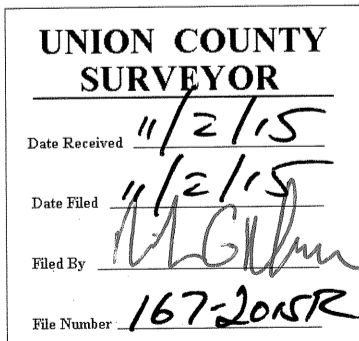 UNION COUNTY
SURVEYOR
Date Received 11/2/15
Date Filed 11/2/15
Filed By
File Number 167-2015R